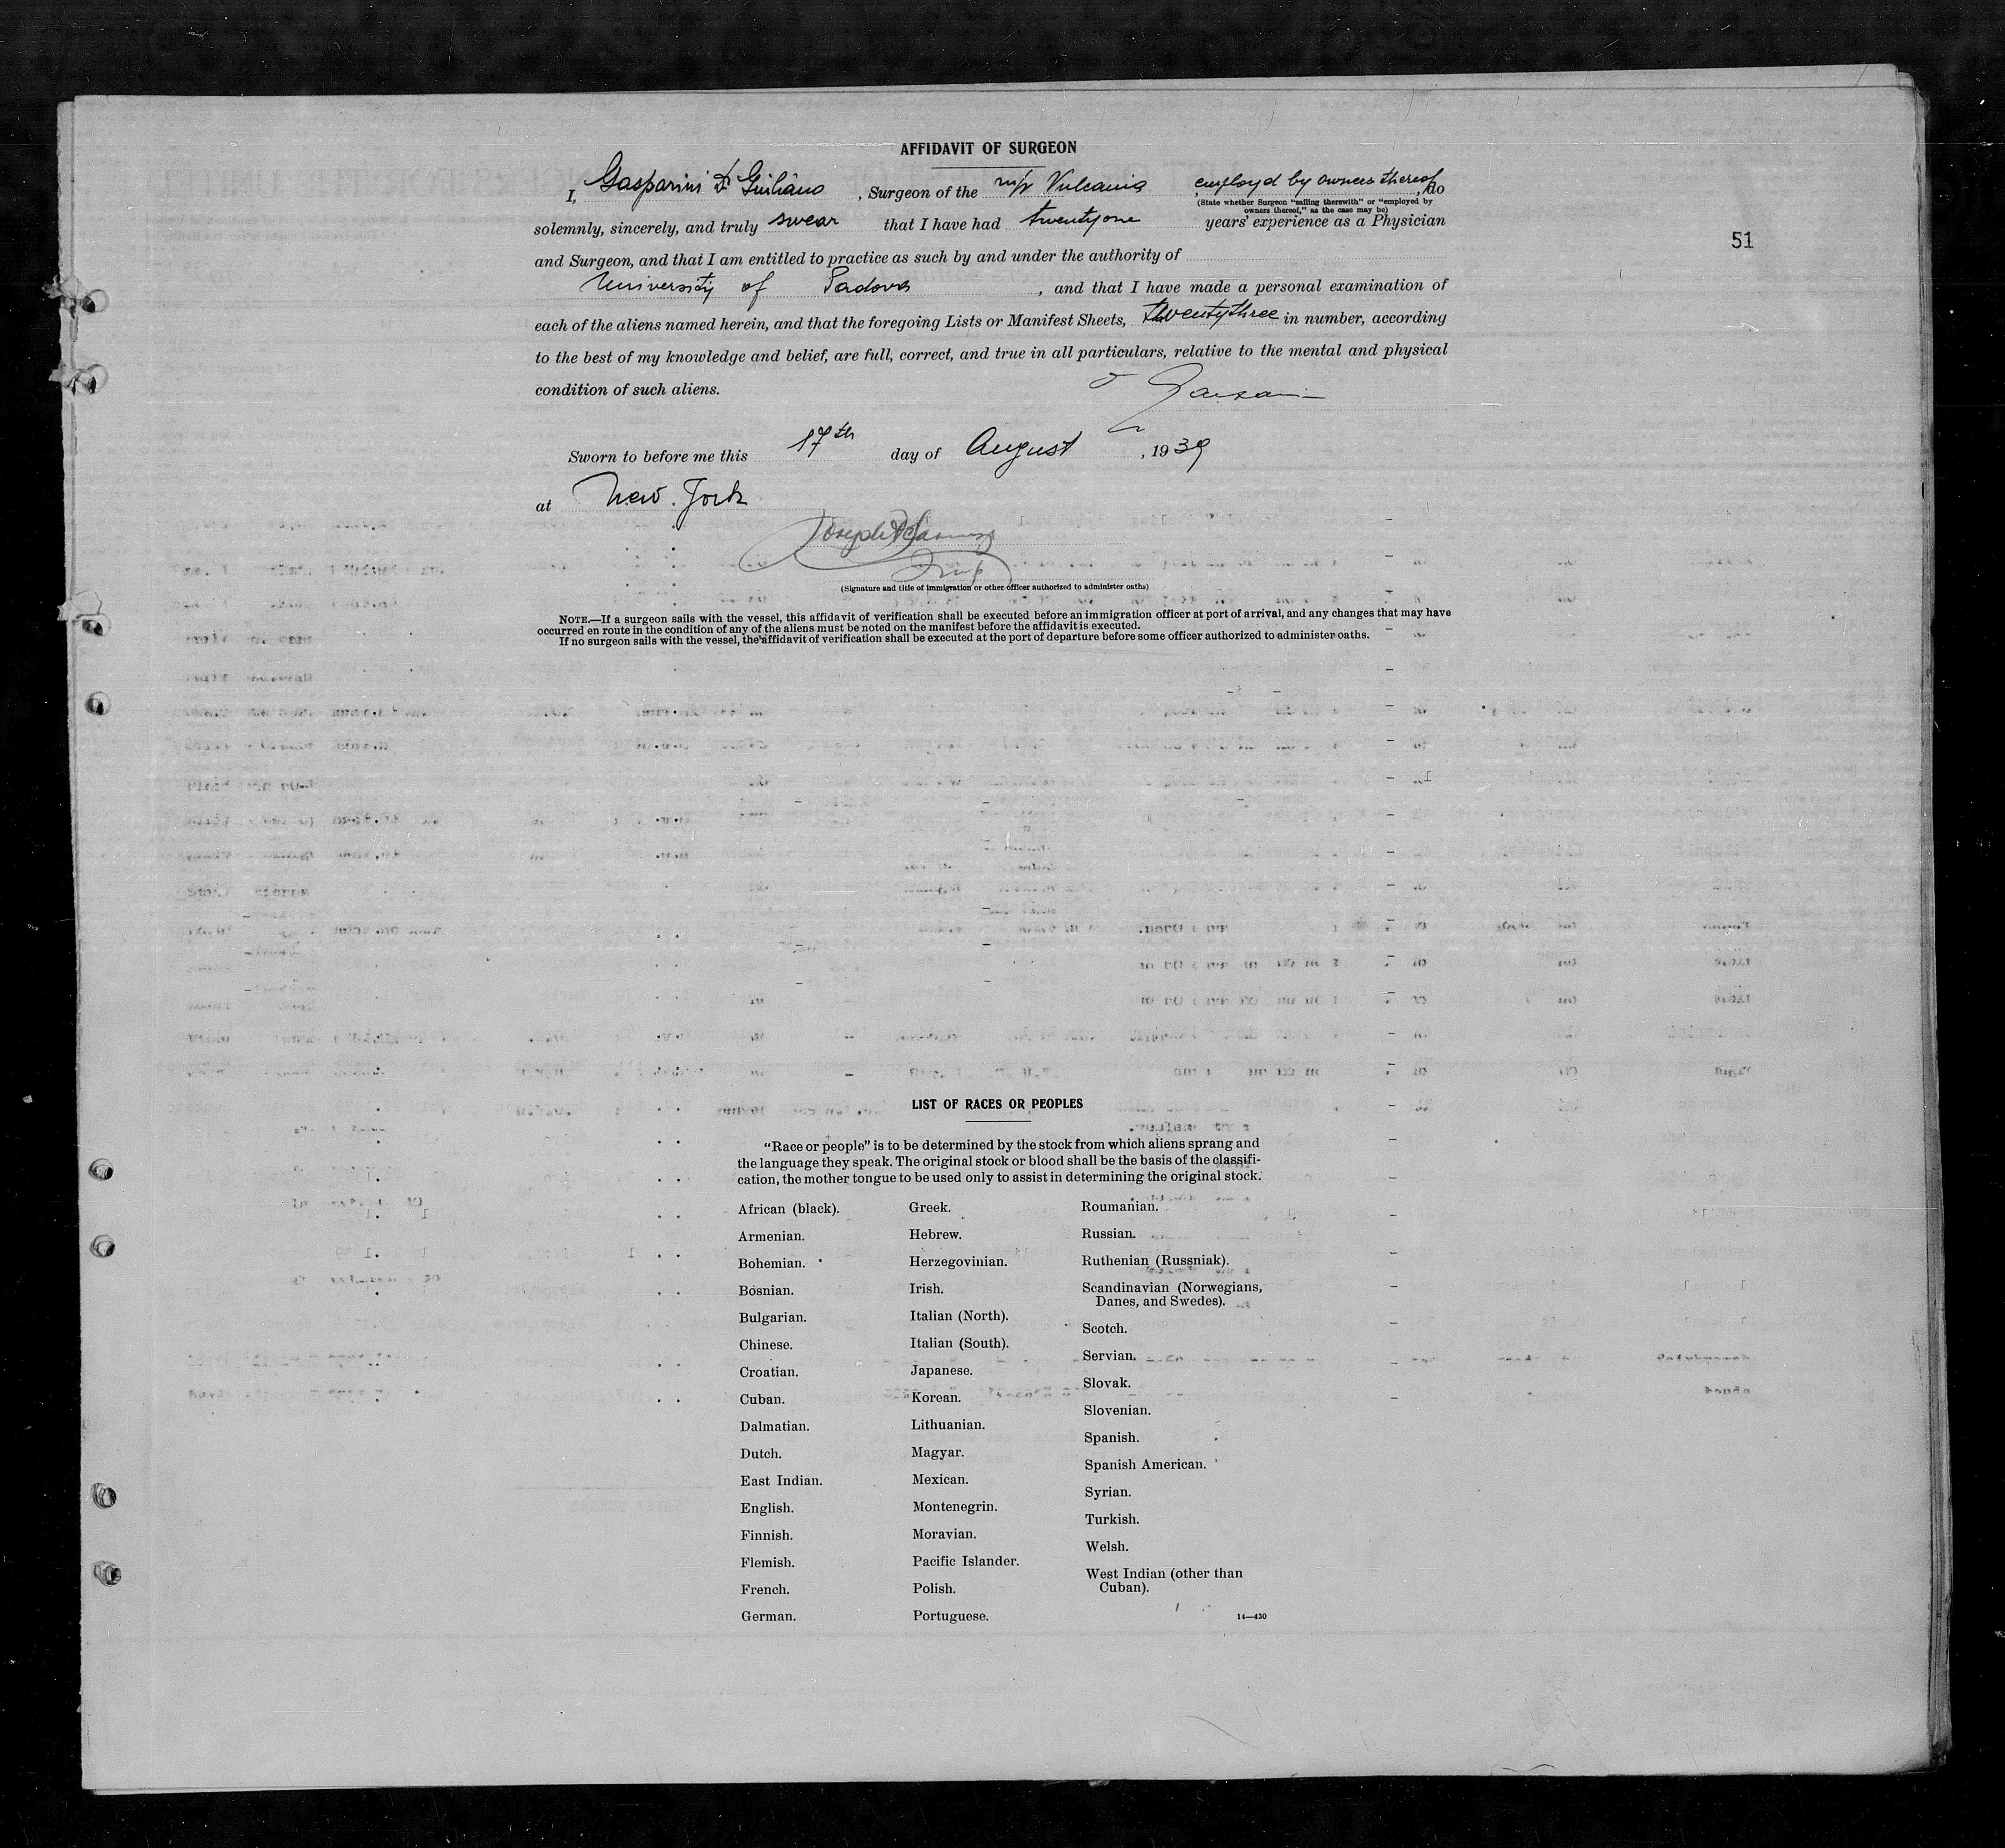 AFFIDAVIT OF SURGEON
I, Gasparini Dr Giuliano, Surgeon of the m/v Vulcania employd by owners thereof, do
(State whether Surgeon "sailing therewith" or "employed by
owners thereof," as the case may be)
solemnly, sincerely, and truly swear that I have had twentyone years' experience as a Physician
51
and Surgeon, and that I am entitled to practice as such by and under the authority of
University of Padova, and that I have made a personal examination of
each of the aliens named herein, and that the foregoing Lists or Manifest Sheets, twentythree in number, according
to the best of my knowledge and belief, are full, correct, and true in all particulars, relative to the mental and physical
condition of such aliens.
Sworn to before me this 17th day of August, 1939
at New York
Joseph
(Signature and title of immigration or other officer authorized to administer oaths)
NOTE.—If a surgeon sails with the vessel, this affidavit of verification shall be executed before an immigration officer at port of arrival, and any changes that may have
occurred en route in the condition of any of the aliens must be noted on the manifest before the affidavit is executed.
If no surgeon sails with the vessel, the affidavit of verification shall be executed at the port of departure before some officer authorized to administer oaths.
LIST OF RACES OR PEOPLES
"Race or people" is to be determined by the stock from which aliens sprang and
the language they speak. The original stock or blood shall be the basis of the classifi-
cation, the mother tongue to be used only to assist in determining the original stock.
African (black).
Armenian.
Bohemian.
Bosnian.
Bulgarian.
Chinese.
Croatian.
Cuban.
Dalmatian.
Dutch.
East Indian.
English.
Finnish.
Flemish.
French.
German.
Greek.
Hebrew.
Herzegovinian.
Irish.
Italian (North).
Italian (South).
Japanese.
Korean.
Lithuanian.
Magyar.
Mexican.
Montenegrin.
Moravian.
Pacific Islander.
Polish.
Portuguese.
Roumanian.
Russian.
Ruthenian (Russniak).
Scandinavian (Norwegians,
Danes, and Swedes).
Scotch.
Servian.
Slovak.
Slovenian.
Spanish.
Spanish American.
Syrian.
Turkish.
Welsh.
West Indian (other than
Cuban).
14—430